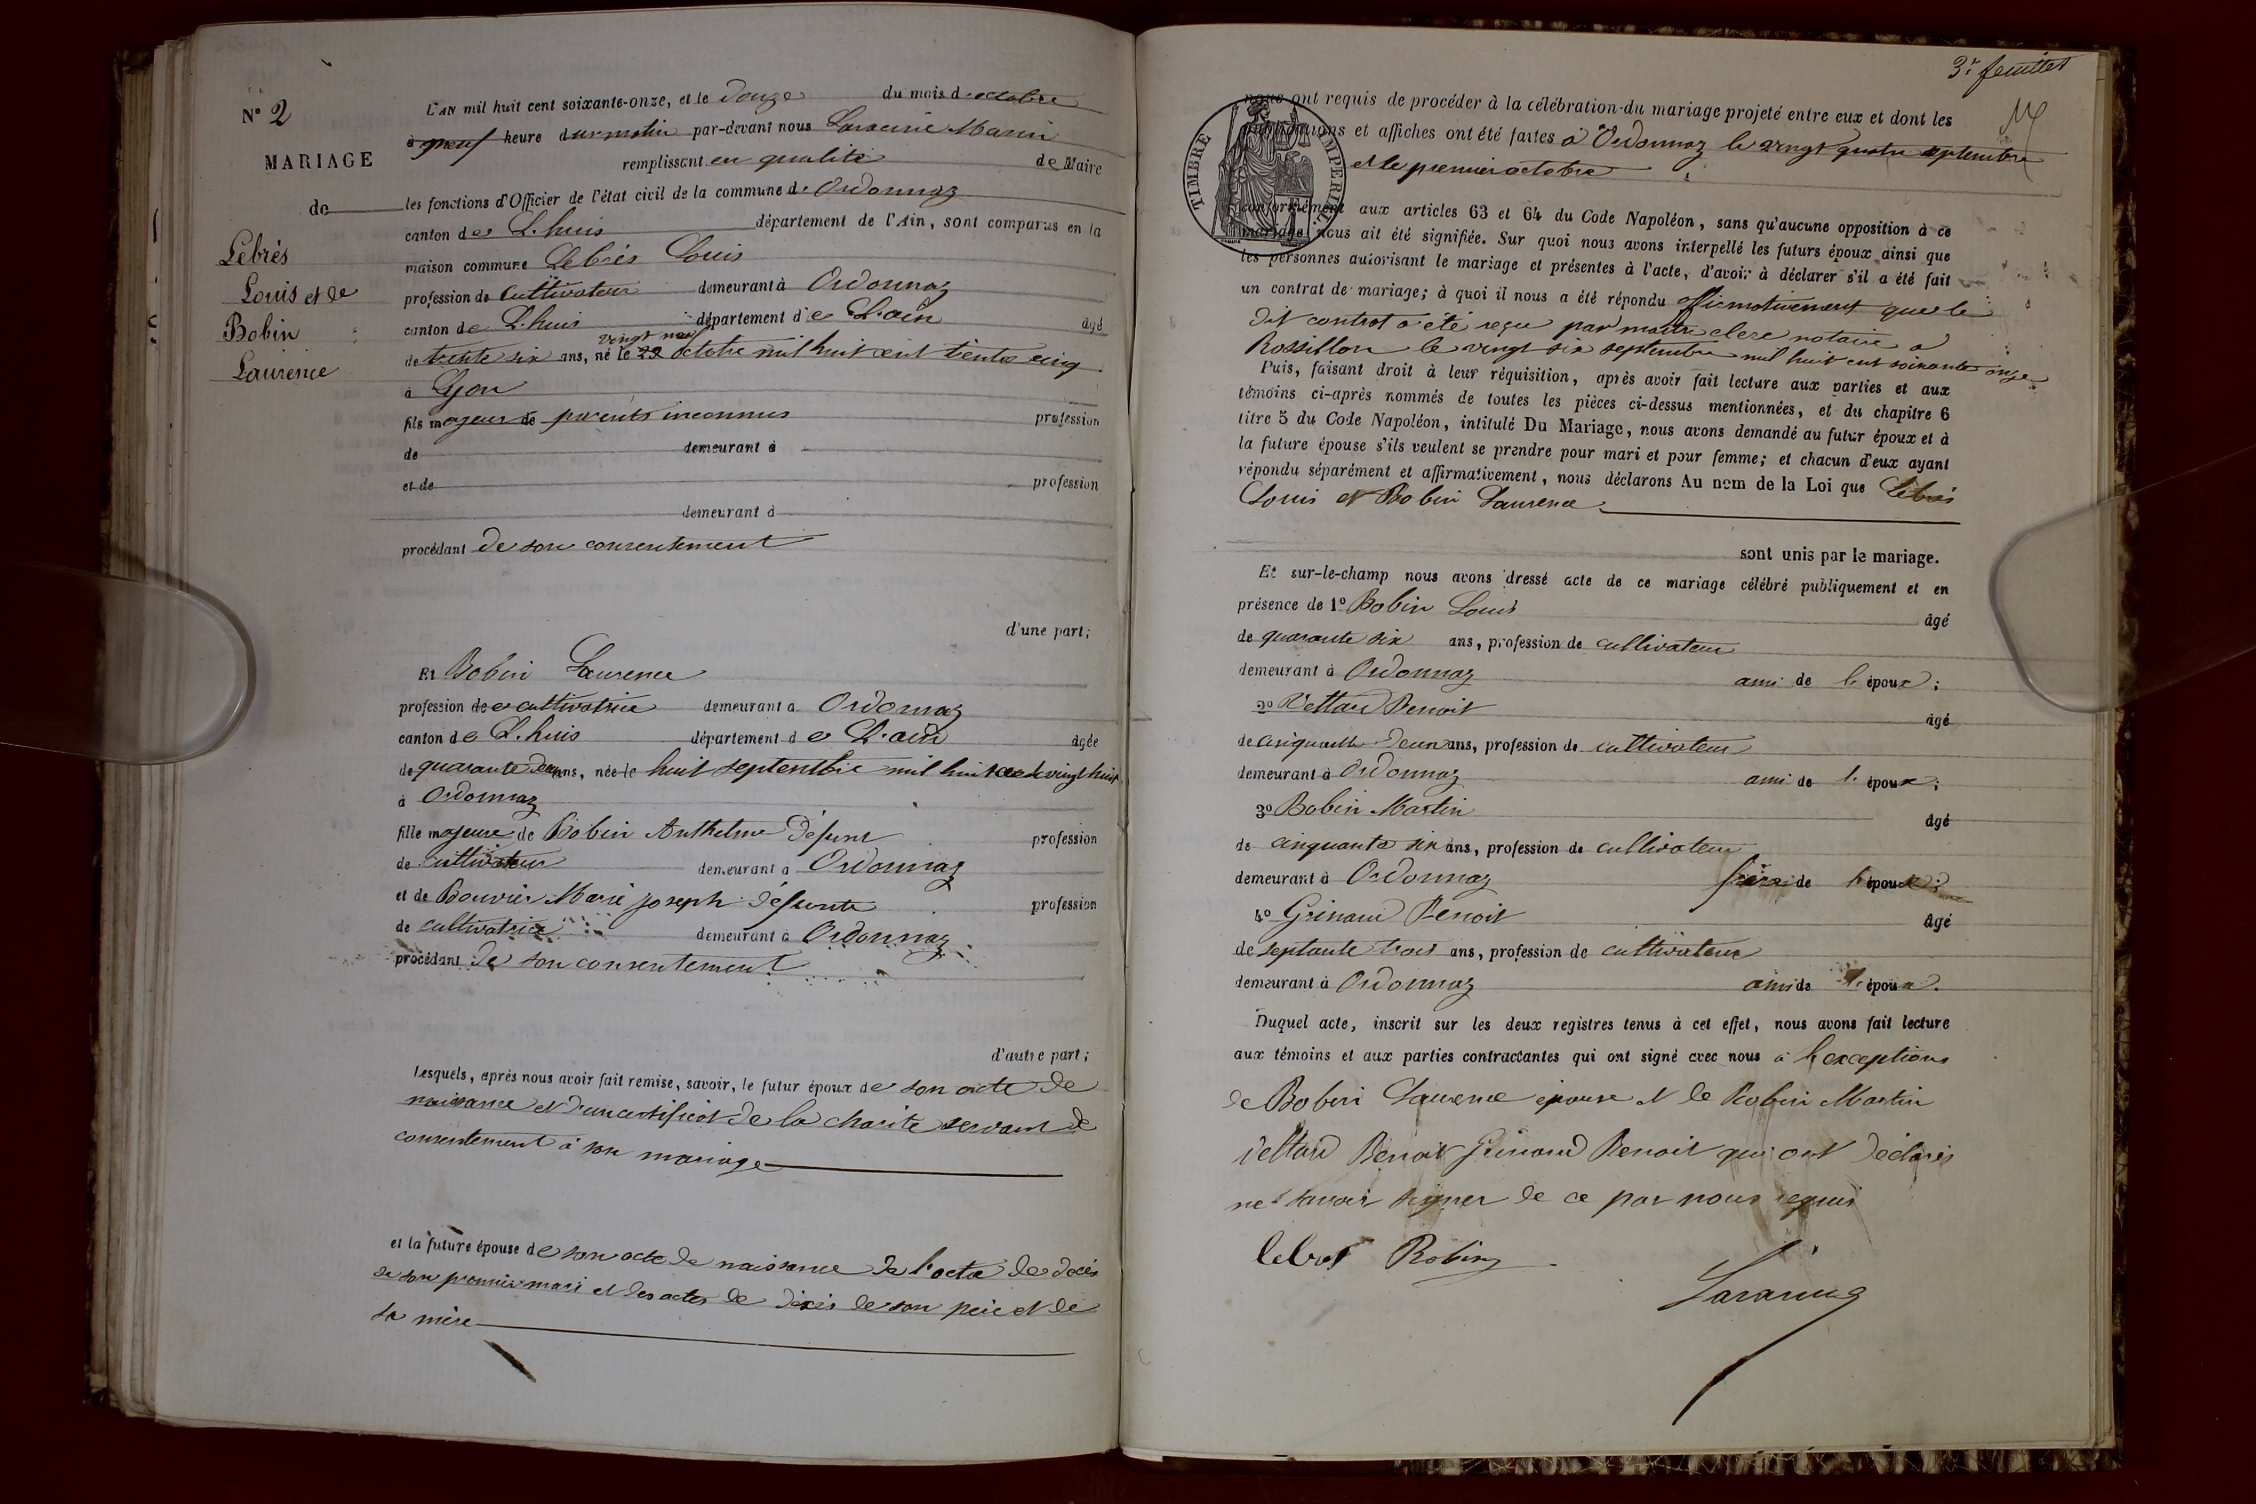 N° 2
MARIAGE
de
Lebrés
Louis et de
Bobin
Laurence
L'AN mil huit cent soixante-onze, et le douze du mois d'octobre
à neuf heure du matin par-devant nous Marin
remplissant en qualité de Maire
les fonctions d'Officier de l'état civil de la commune d'Ordonnaz
canton de L'huis département de l'Ain, sont comparus en la
maison commune Lebrés Louis
profession de Cultivateur demeurant à Ordonnaz
canton de L'huis département de L'ain âgé
vingt neuf
de trente six ans, né le 29 octobre mil huit cent trente cinq
à Lyon
fils majeur de parents inconnus profession
de demeurant à
et de profession
demeurant à
procédant de son consentement
d'une part;
Et Bobin Laurence
profession de cultivatrice demeurant à Ordonnaz
canton de L'huis département de L'ain âgée
de quarante deux ans, née le huit septembre mil huit cent vingt huit
à Ordonnaz
fille majeure de Bobin Anthelme défunt profession
de cultivateur demeurant à Ordonnaz
et de Bouvier Marie joseph défunte profession
de cultivatrice demeurant à Ordonnaz
procédant de son consentement
d'autre part;
Lesquels, après nous avoir fait remise, savoir, le futur époux de son acte de
naissance et d'un certificat de la charite servant de
consentement à son mariage
et la future épouse de son acte de naissance de l'acte de décés
de son premier mari et des actes de décés de son père et de
sa mère
3e feuillet
nous ont requis de procéder à la célébration du mariage projeté entre eux et dont les
publications et affiches ont été faites à Ordonnaz le vingt quatre septembre
et le premier octobre
TIMBRE IMPERIAL
conformément aux articles 63 et 64 du Code Napoléon, sans qu'aucune opposition à ce
mariage nous ait été signifiée. Sur quoi nous avons interpellé les futurs époux ainsi que
les personnes autorisant le mariage et présentes à l'acte, d'avoir à déclarer s'il a été fait
un contrat de mariage; à quoi il nous a été répondu affirmativement que le
dit contrat a été reçu par maitre clerc notaire a
Rossillon le vingt six septembre mil huit cent soixante onze
Puis, faisant droit à leur réquisition, après avoir fait lecture aux parties et aux
témoins ci-après nommés de toutes les pièces ci-dessus mentionnées, et du chapitre 6
titre 5 du Code Napoléon, intitulé Du Mariage, nous avons demandé au futur époux et à
la future épouse s'ils veulent se prendre pour mari et pour femme; et chacun d'eux ayant
répondu séparément et affirmativement, nous déclarons Au nom de la Loi que Lebrés
Louis et Bobin Laurence
sont unis par le mariage.
Et sur-le-champ nous avons dressé acte de ce mariage célébré publiquement et en
présence de 1° Bobin Louis âgé
de quarante six ans, profession de cultivateur
demeurant à Ordonnaz ami de l'époux;
2° Vettard Benoit âgé
de cinquante deux ans, profession de cultivateur
demeurant à Ordonnaz ami de l'époux;
3° Bobin Martin âgé
de cinquante six ans, profession de cultivateur
demeurant à Ordonnaz frère de l'épouse;
4° Grinand Benoit âgé
de septante trois ans, profession de cultivateur
demeurant à Ordonnaz ami de l'époux.
Duquel acte, inscrit sur les deux registres tenus à cet effet, nous avons fait lecture
aux témoins et aux parties contractantes qui ont signé avec nous à l'exceptions
de Bobin Laurence épouse et de Bobin Martin
Vettard Benoit Grinand Benoit qui ont déclarés
ne savoir signer de ce par nous requis
lebres Bobin